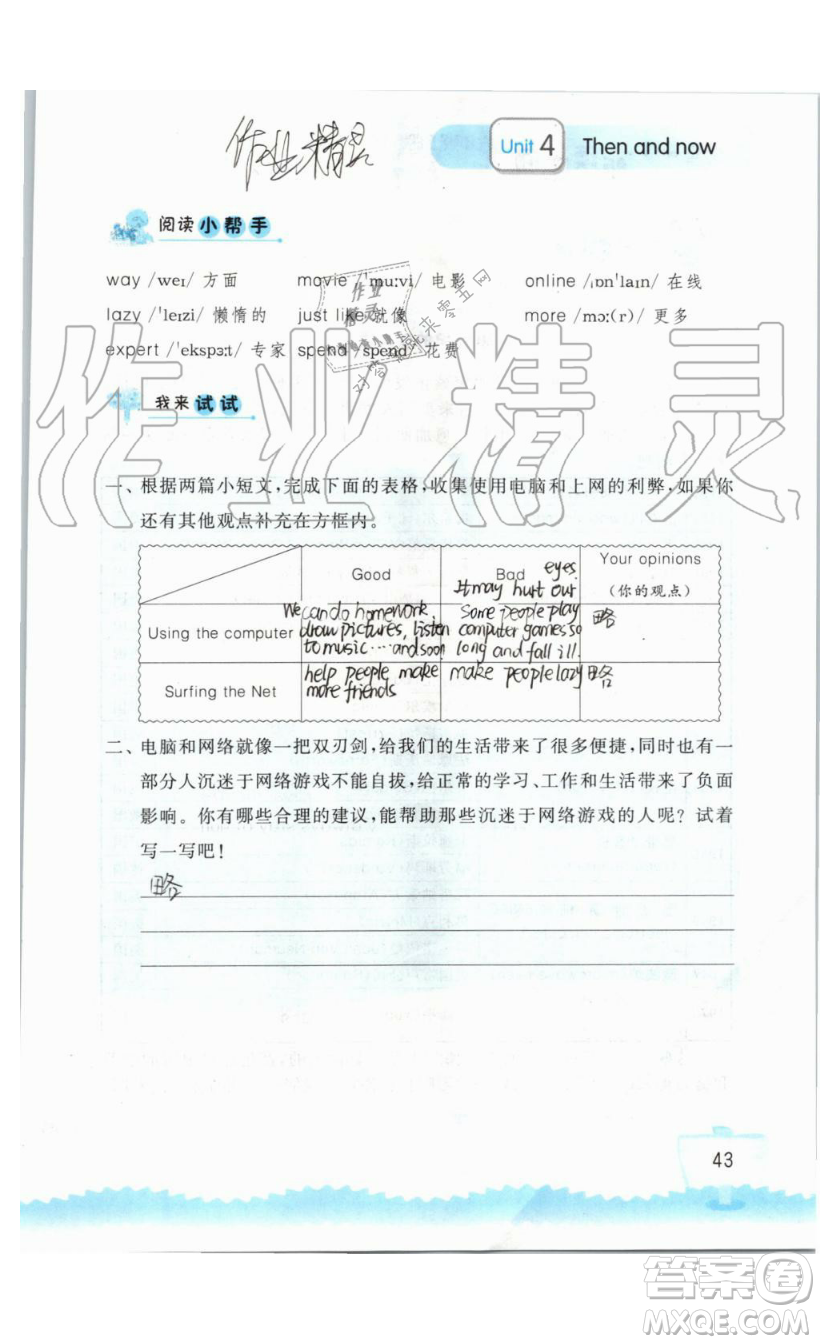 作业精灵
Unit 4 Then and now
阅读小帮手
way /weɪ/ 方面 movie /ˈmuːvi/ 电影 online /ˌɒnˈlaɪn/ 在线
lazy /ˈleɪzi/ 懒惰的 just like 就像 more /mɔː(r)/ 更多
expert /ˈekspɜːt/ 专家 spend /spend/ 花费
对答案就来零五网
作业精灵
我来试试
一、根据两篇小短文,完成下面的表格,收集使用电脑和上网的利弊,如果你
还有其他观点补充在方框内。
Good
Bad
Your opinions
(你的观点)
Using the computer
We can do homework,
draw pictures, listen
to music……and soon.
It may hurt our eyes.
Some people play
computer games so
long and fall ill.
略
Surfing the Net
help people make
more friends
make people lazy
略
二、电脑和网络就像一把双刃剑,给我们的生活带来了很多便捷,同时也有一
部分人沉迷于网络游戏不能自拔,给正常的学习、工作和生活带来了负面
影响。你有哪些合理的建议,能帮助那些沉迷于网络游戏的人呢?试着
写一写吧!
略
43
答案圈
MXQE.COM